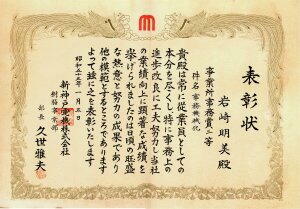 表彰状
事業所事務賞二等
件名 事務機械化
岩崎明美殿
貴殿は常に従業員としての
本分を尽くし特に事務上の
進歩改良に多大努力し当社
の業績向上に顕著な成績を
挙げられましたのは日頃の旺盛
な熱意と努力の成果であり
他の模範とするところであります
よって茲に之を表彰いたします
昭和五十三年一月五日
新神戸電機株式会社
部長 久世雅夫